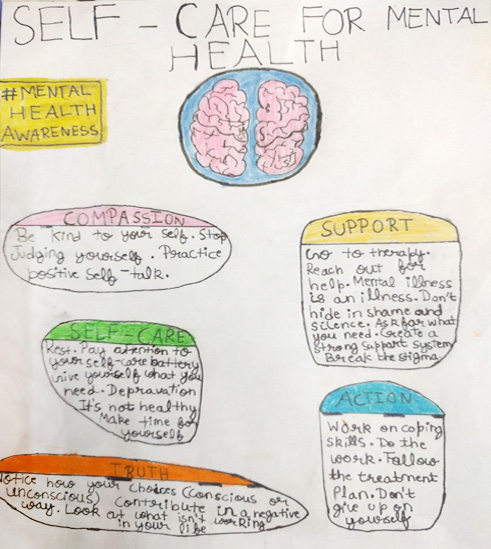 SELF - CARE FOR MENTAL
HEALTH
#MENTAL
HEALTH
AWARENESS
COMPASSION
Be kind to your self. Stop
Judging yourself. Practice
positive self-talk.
SUPPORT
Go to therapy.
Reach out for
help. Mental illness
is an illness. Don't
hide in shame and
scilence. Ask for what
you need. Create a
strong support system
Break the stigma.
SELF-CARE
Rest. Pay attention to
your self-care battery
Give yourself what you
need. Depravation
It's not healthy
Make time for
yourself
ACTION
Work on coping
skills. Do the
work. Follow
the treatment
Plan. Don't
give up on
yourself
TRUTH
Notice how your choices (conscious or
unconscious) contribute in a negative
way. Look at what isn't working
in your life